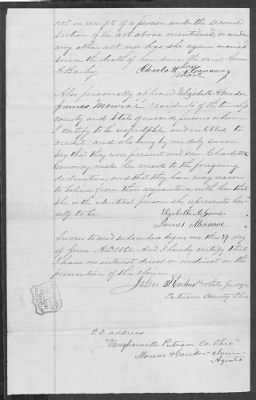 not in receipt of a pension under the second
section of the act above mentioned, or under
any other act nor has she again married
since the death of her son the said
her
Charlotte Conaway
mark
Also personally appeared Elizabeth A Gander
James Monroe residents of the township
county and State aforesaid persons whom
I certify to be respectable and entitled to
credit and who being by me duly sworn
say that they were present and saw Charlotte
Conaway make her mark to the foregoing
declaration and that they have every reason
to believe from their acquaintance with her that
she is the identical person she represents her
self to be
Elizabeth A Gander
James Monroe
Sworn to and subscribed before me this 29 day
of June A.D. 1880. And I hereby certify that
I have no interest direct or indirect in the
prosecution of this claim
John
Putnam County Ohio
P.O. address
Vaughnsville Putnam Co. Ohio
Monroe & Gander
Agents